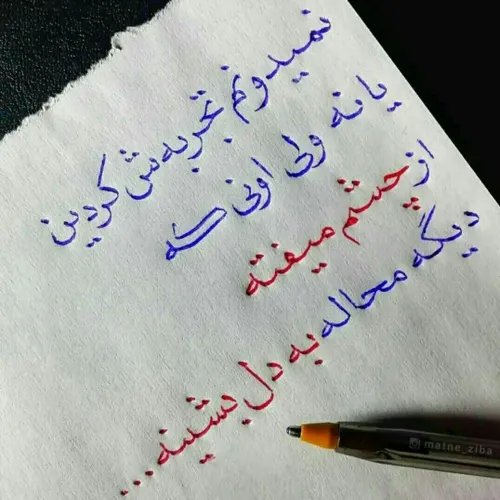 نمیدونم تجربه‌ش کردین
یا نه ولی اونی که
از چشم میفته
دیگه محاله به دل بشینه...
matne_ziba